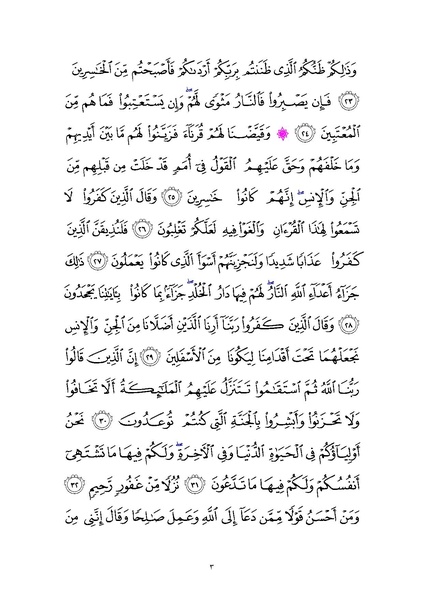 وَذَٰلِكُمْ ظَنُّكُمُ ٱلَّذِى ظَنَنتُم بِرَبِّكُمْ أَرْدَىٰكُمْ فَأَصْبَحْتُم مِّنَ ٱلْخَـٰسِرِينَ
٢٣ فَإِن يَصْبِرُوا۟ فَٱلنَّارُ مَثْوًى لَّهُمْ ۖ وَإِن يَسْتَعْتِبُوا۟ فَمَا هُم مِّنَ
ٱلْمُعْتَبِينَ ٢٤ ۞ وَقَيَّضْنَا لَهُمْ قُرَنَآءَ فَزَيَّنُوا۟ لَهُم مَّا بَيْنَ أَيْدِيهِمْ
وَمَا خَلْفَهُمْ وَحَقَّ عَلَيْهِمُ ٱلْقَوْلُ فِىٓ أُمَمٍ قَدْ خَلَتْ مِن قَبْلِهِم مِّنَ
ٱلْجِنِّ وَٱلْإِنسِ ۖ إِنَّهُمْ كَانُوا۟ خَـٰسِرِينَ ٢٥ وَقَالَ ٱلَّذِينَ كَفَرُوا۟ لَا
تَسْمَعُوا۟ لِهَـٰذَا ٱلْقُرْءَانِ وَٱلْغَوْا۟ فِيهِ لَعَلَّكُمْ تَغْلِبُونَ ٢٦ فَلَنُذِيقَنَّ ٱلَّذِينَ
كَفَرُوا۟ عَذَابًا شَدِيدًا وَلَنَجْزِيَنَّهُمْ أَسْوَأَ ٱلَّذِى كَانُوا۟ يَعْمَلُونَ ٢٧ ذَٰلِكَ
جَزَآءُ أَعْدَآءِ ٱللَّهِ ٱلنَّارُ ۖ لَهُمْ فِيهَا دَارُ ٱلْخُلْدِ ۖ جَزَآءًۢ بِمَا كَانُوا۟ بِـَٔايَـٰتِنَا يَجْحَدُونَ
٢٨ وَقَالَ ٱلَّذِينَ كَفَرُوا۟ رَبَّنَآ أَرِنَا ٱلَّذَيْنِ أَضَلَّانَا مِنَ ٱلْجِنِّ وَٱلْإِنسِ
نَجْعَلْهُمَا تَحْتَ أَقْدَامِنَا لِيَكُونَا مِنَ ٱلْأَسْفَلِينَ ٢٩ إِنَّ ٱلَّذِينَ قَالُوا۟
رَبُّنَا ٱللَّهُ ثُمَّ ٱسْتَقَـٰمُوا۟ تَتَنَزَّلُ عَلَيْهِمُ ٱلْمَلَـٰٓئِكَةُ أَلَّا تَخَافُوا۟
وَلَا تَحْزَنُوا۟ وَأَبْشِرُوا۟ بِٱلْجَنَّةِ ٱلَّتِى كُنتُمْ تُوعَدُونَ ٣٠ نَحْنُ
أَوْلِيَآؤُكُمْ فِى ٱلْحَيَوٰةِ ٱلدُّنْيَا وَفِى ٱلْـَٔاخِرَةِ ۖ وَلَكُمْ فِيهَا مَا تَشْتَهِىٓ
أَنفُسُكُمْ وَلَكُمْ فِيهَا مَا تَدَّعُونَ ٣١ نُزُلًا مِّنْ غَفُورٍ رَّحِيمٍ ٣٢
وَمَنْ أَحْسَنُ قَوْلًا مِّمَّن دَعَآ إِلَى ٱللَّهِ وَعَمِلَ صَـٰلِحًا وَقَالَ إِنَّنِى مِنَ
٣